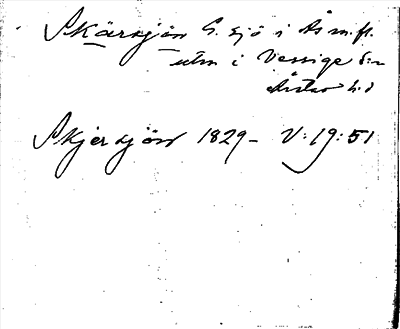 Skärsjön G. sjö i Ås m.fl.
utm i Vessige sn
Årstad hd
Skjersjön 1829 - V: 19: 51